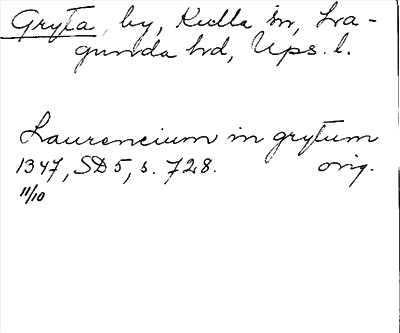 Gryta, by, Kulla sn, Lra-
gunda hd, Ups. l.
Laurencium in grytum
1347, SD 5, s. 728. orig.
11/10